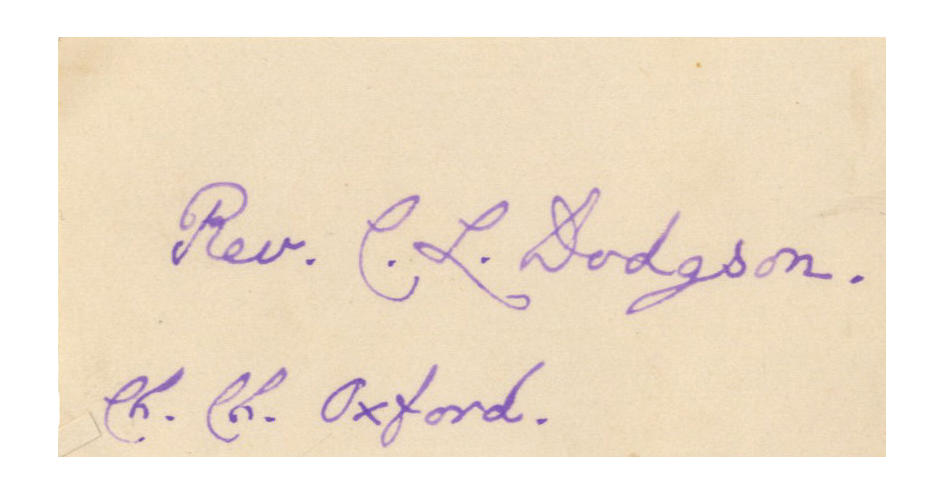 Rev. C. L. Dodgson.
Ch. Ch. Oxford.